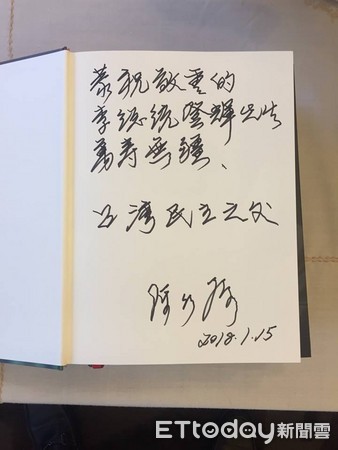 恭祝敬重的
李總統登輝先生
萬壽無疆、
台灣民主之父
陳水扁
2018.1.15
ETtoday新聞雲